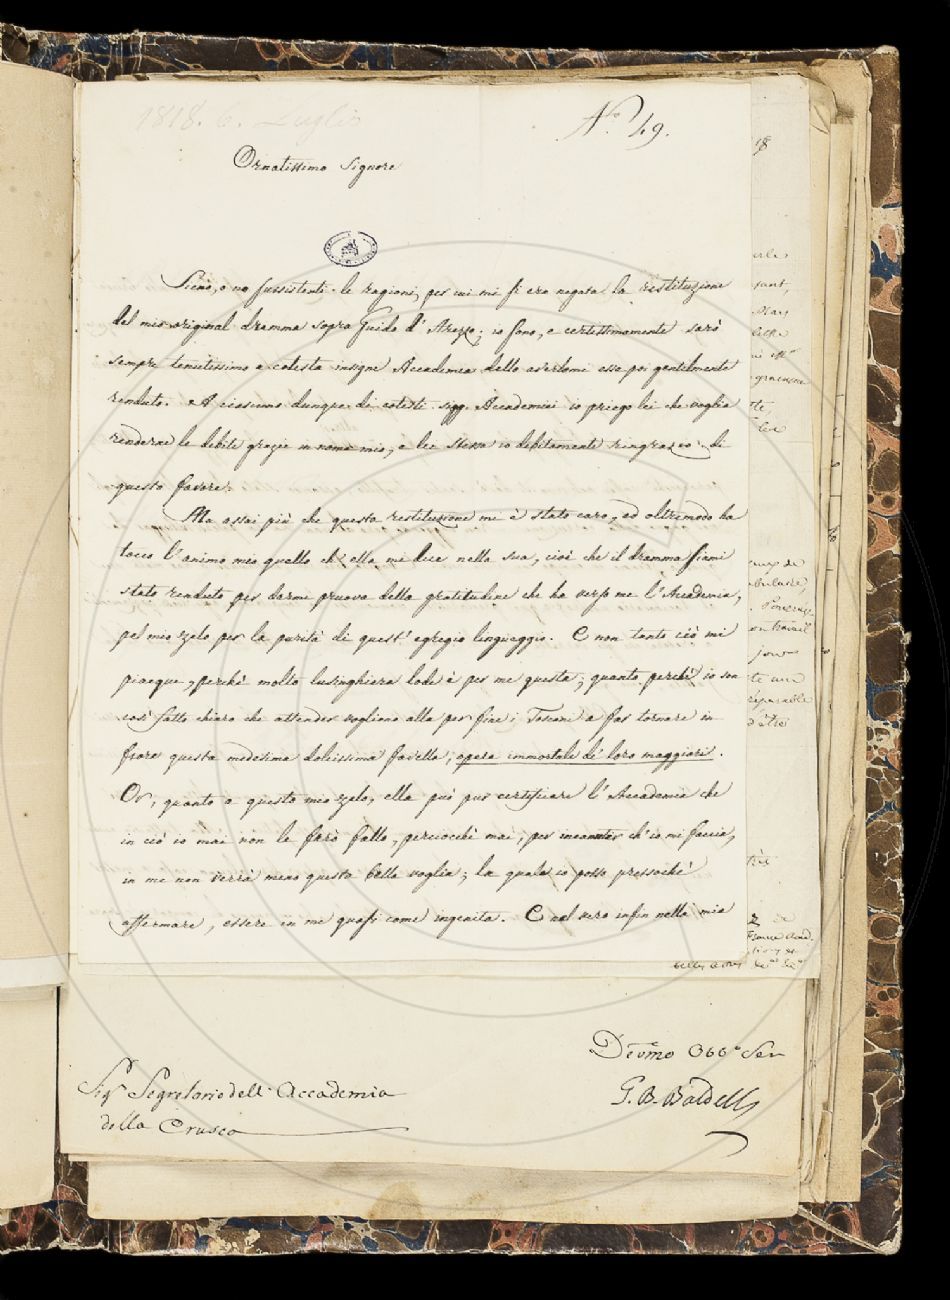 1818. 6. Luglio
N.º 49.
Ornatissimo Signore
Sieno, o no sussistenti le ragioni, per cui mi si era negata la restituzione
del mio original dramma sopra Guido d'Arezzo; io sono, e certissimamente sarò
sempre tenutissimo a cotesta insigne Accademia dello avermi esso poi gentilmente
renduto. A ciascuno dunque di cotesti sigg. Accademici io priego lei che voglia
renderne le debite grazie in nome mio, e lei stessa io debitamente ringrazio di
questo favore.
Ma assai più che questa restituzione mi è stato caro, ed oltremodo ha
tocco l'animo mio quello ch'ella mi dice nella sua, cioè che il dramma siami
stato renduto per darmi pruova della gratitudine che ha verso me l'Accademia,
pel mio zelo per la purità di quest'egregio linguaggio. E non tanto ciò mi
piacque, perchè molto lusinghiera lode è per me questa; quanto perchè io son
così fatto chiaro che attender vogliono alla per fine i Toscani a far tornare in
fiore questa medesima dolcissima favella, opera immortale de' loro maggiori.
Or, quanto a questo mio zelo, ella può pur certificare l'Accademia che
in ciò io mai non le farò fallo, perciocchè mai, per ch'io mi faccia,
in me non verrà meno questa bella voglia; la quale io posso pressochè
affermare, essere in me quasi come ingenita. E nel vero infin nella mia
Devmo Obbº Ser
G. B. Baldelli
Sigr Segretario dell'Accademia
della Crusca